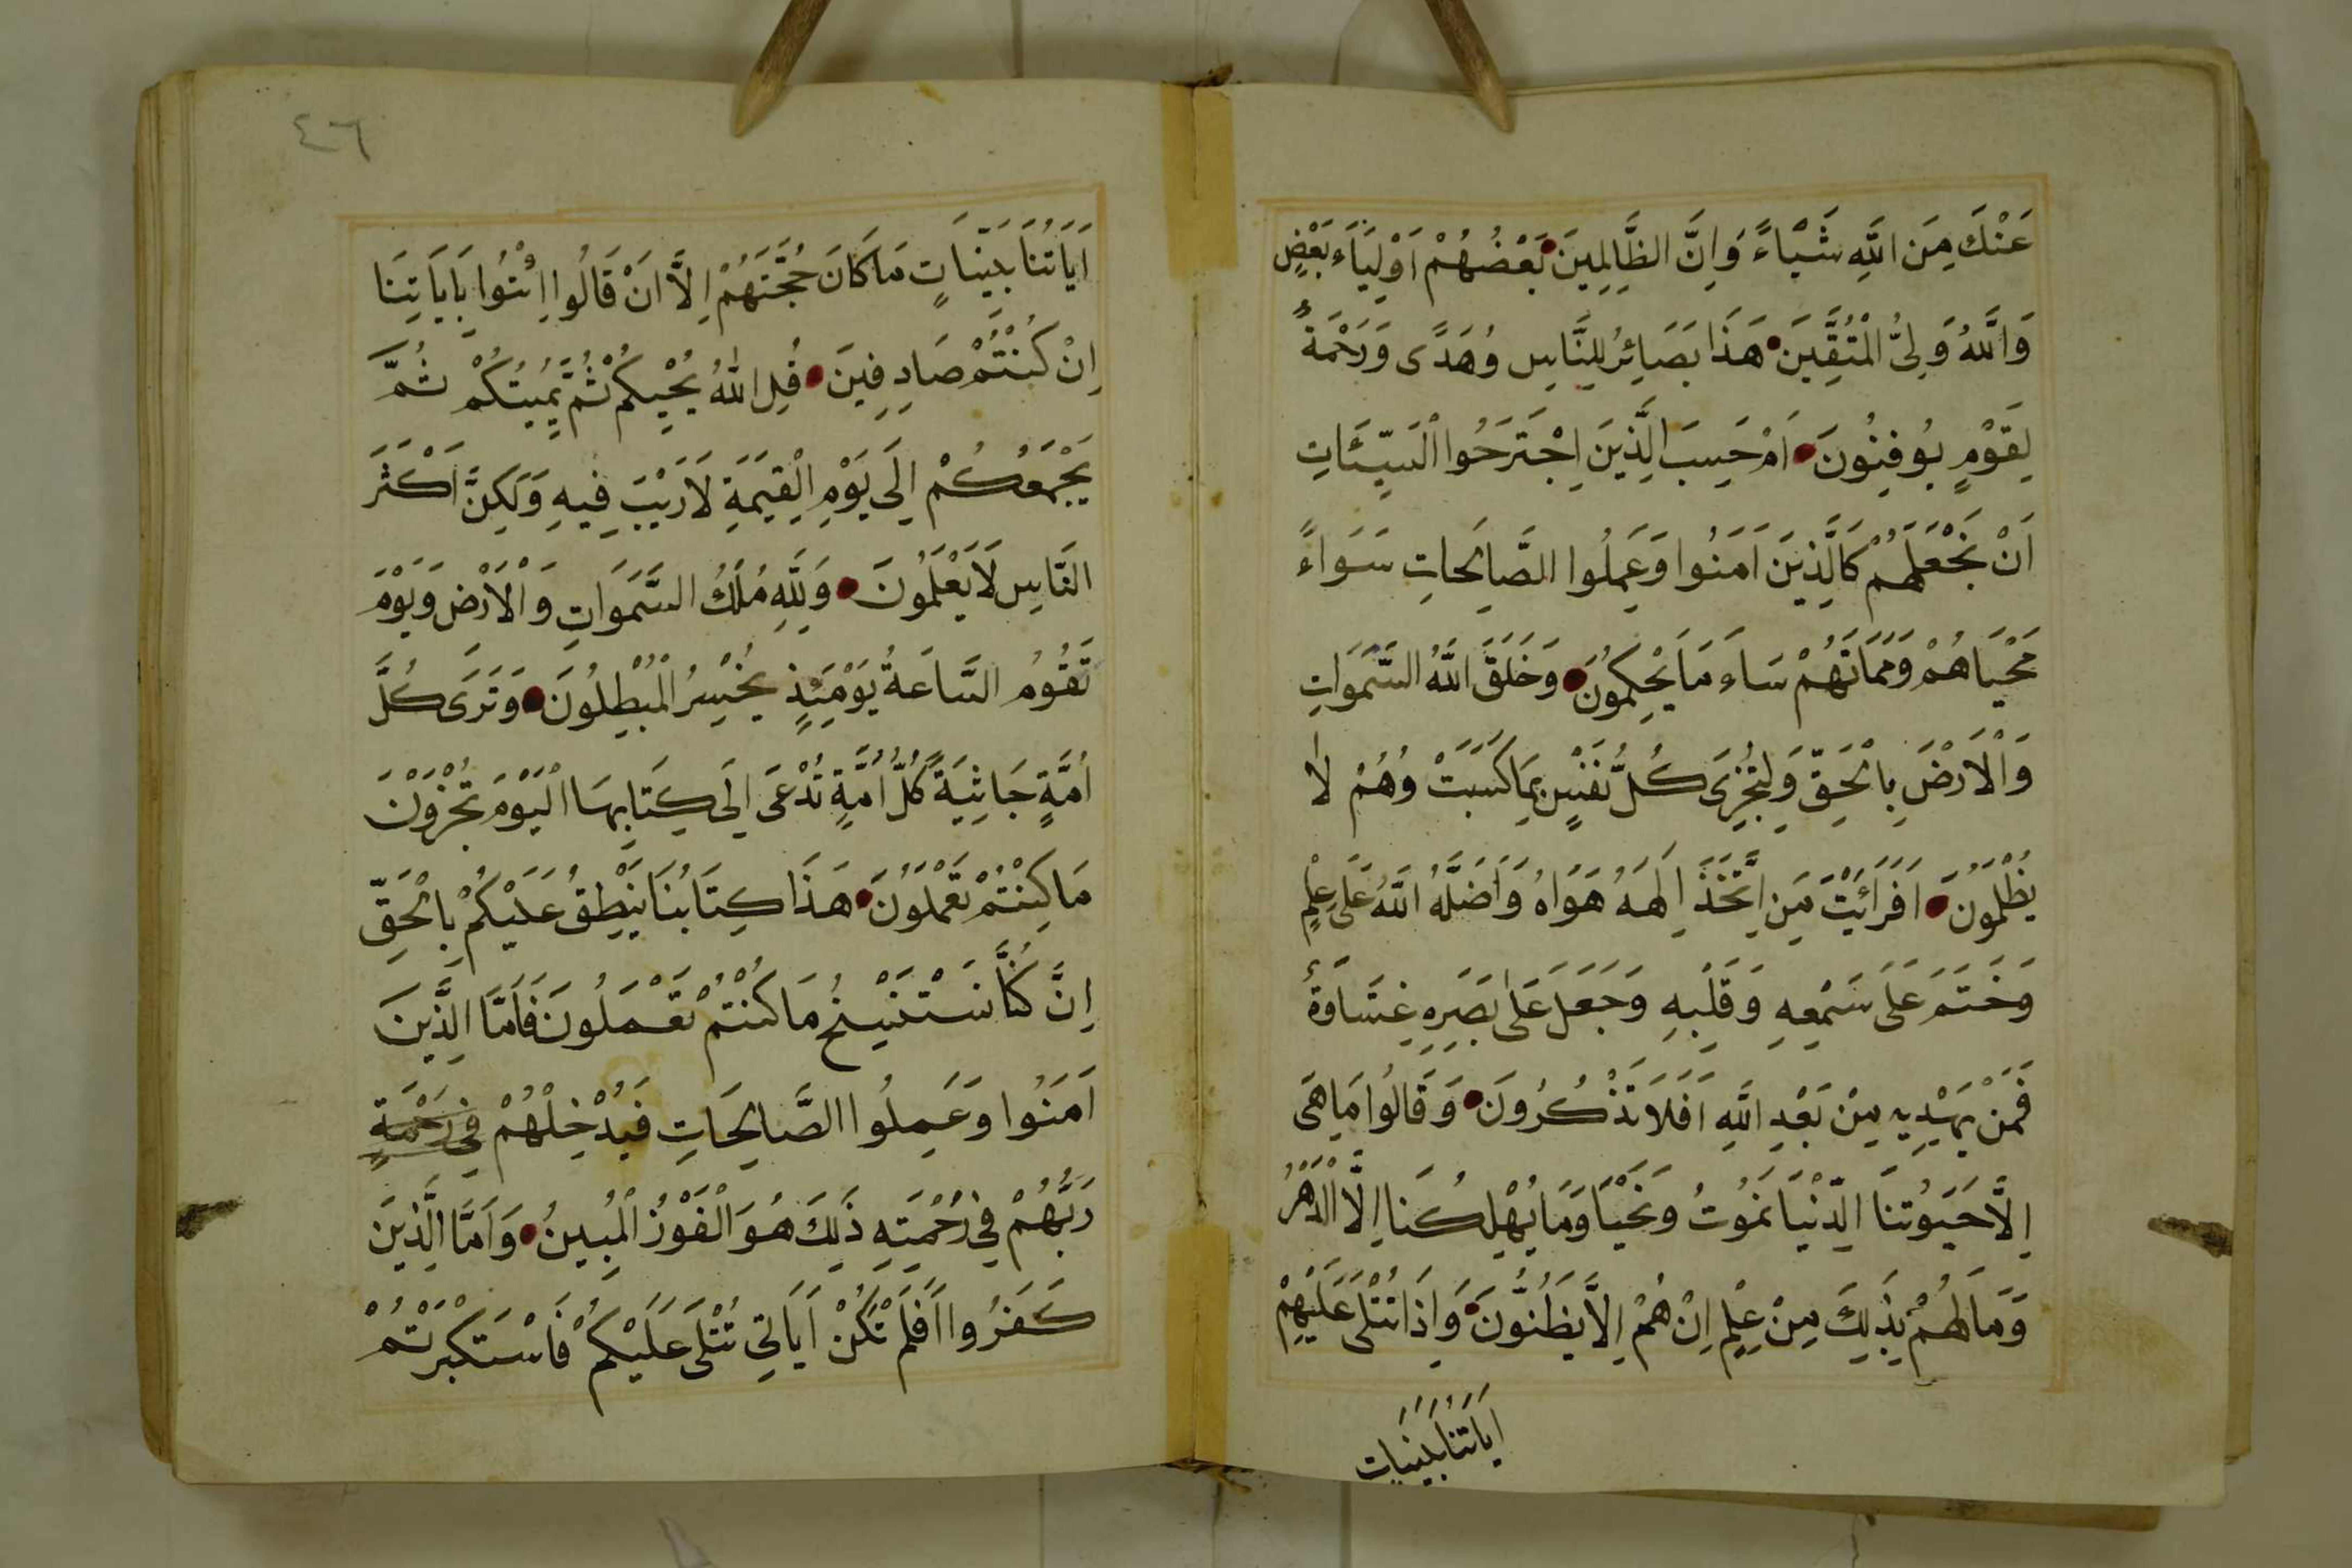 عَنْكَ مِنَ اللَّهِ شَيْاءً وَاِنَّ الظَّالِمِينَ بَعْضُهُمْ اَوْلِيَاءُ بَعْضٍ
وَاللَّهُ وَلِيُّ الْمُتَّقِينَ هَذَا بَصَائِرُ لِلنَّاسِ وَهُدًى وَرَحْمَةٌ
لِقَوْمٍ يُوقِنُونَ اَمْ حَسِبَ الَّذِينَ اجْتَرَحُوا السَّيِّئَاتِ
اَنْ نَجْعَلَهُمْ كَالَّذِينَ اَمَنُوا وَعَمِلُوا الصَّالِحَاتِ سَوَاءً
مَحْيَاهُمْ وَمَمَاتُهُمْ سَاءَ مَا يَحْكُمُونَ وَخَلَقَ اللَّهُ السَّمَوَاتِ
وَالْاَرْضَ بِالْحَقِّ وَلِتُجْزَى كُلُّ نَفْسٍ بِمَا كَسَبَتْ وَهُمْ لَا
يُظْلَمُونَ اَفَرَاَيْتَ مَنِ اتَّخَذَ اِلَهَهُ هَوَاهُ وَاَضَلَّهُ اللَّهُ عَلَى عِلْمٍ
وَخَتَمَ عَلَى سَمْعِهِ وَقَلْبِهِ وَجَعَلَ عَلَى بَصَرِهِ غِشَاوَةً
فَمَنْ يَهْدِيهِ مِنْ بَعْدِ اللَّهِ اَفَلَا تَذَكَّرُونَ وَقَالُوا مَا هِيَ
اِلَّا حَيَوتُنَا الدُّنْيَا نَمُوتُ وَنَحْيَا وَمَا يُهْلِكُنَا اِلَّا الدَّهْرُ
وَمَا لَهُمْ بِذَلِكَ مِنْ عِلْمٍ اِنْ هُمْ اِلَّا يَظُنُّونَ وَاِذَا تُتْلَى عَلَيْهِمْ
اَيَاتُنَا بَيِّنَاتٍ
٤٦
اَيَاتُنَا بَيِّنَاتٍ مَا كَانَ حُجَّتَهُمْ اِلَّا اَنْ قَالُوا ائْتُوا بِاَيَاتِنَا
اِنْ كُنْتُمْ صَادِقِينَ قُلِ اللَّهُ يُحْيِيكُمْ ثُمَّ يُمِيتُكُمْ ثُمَّ
يَجْمَعُكُمْ اِلَى يَوْمِ الْقِيَمَةِ لَا رَيْبَ فِيهِ وَلَكِنَّ اَكْثَرَ
النَّاسِ لَا يَعْلَمُونَ وَلِلَّهِ مُلْكُ السَّمَوَاتِ وَالْاَرْضِ وَيَوْمَ
تَقُومُ السَّاعَةُ يَوْمَئِذٍ يَخْسِرُ الْمُبْطِلُونَ وَتَرَى كُلَّ
اُمَّةٍ جَاثِيَةً كُلُّ اُمَّةٍ تُدْعَى اِلَى كِتَابِهَا اَلْيَوْمَ تُجْزَوْنَ
مَا كُنْتُمْ تَعْمَلُونَ هَذَا كِتَابُنَا يَنْطِقُ عَلَيْكُمْ بِالْحَقِّ
اِنَّ كُنَّا نَسْتَنْسِخُ مَا كُنْتُمْ تَعْمَلُونَ فَاَمَّا الَّذِينَ
اَمَنُوا وَعَمِلُوا الصَّالِحَاتِ فَيُدْخِلُهُمْ فِي رَحْمَةٍ
رَبُّهُمْ فِي رَحْمَتِهِ ذَلِكَ هُوَ الْفَوْزُ الْمُبِينُ وَاَمَّا الَّذِينَ
كَفَرُوا اَفَلَمْ تَكُنْ اَيَاتِي تُتْلَى عَلَيْكُمْ فَاسْتَكْبَرْتُمْ